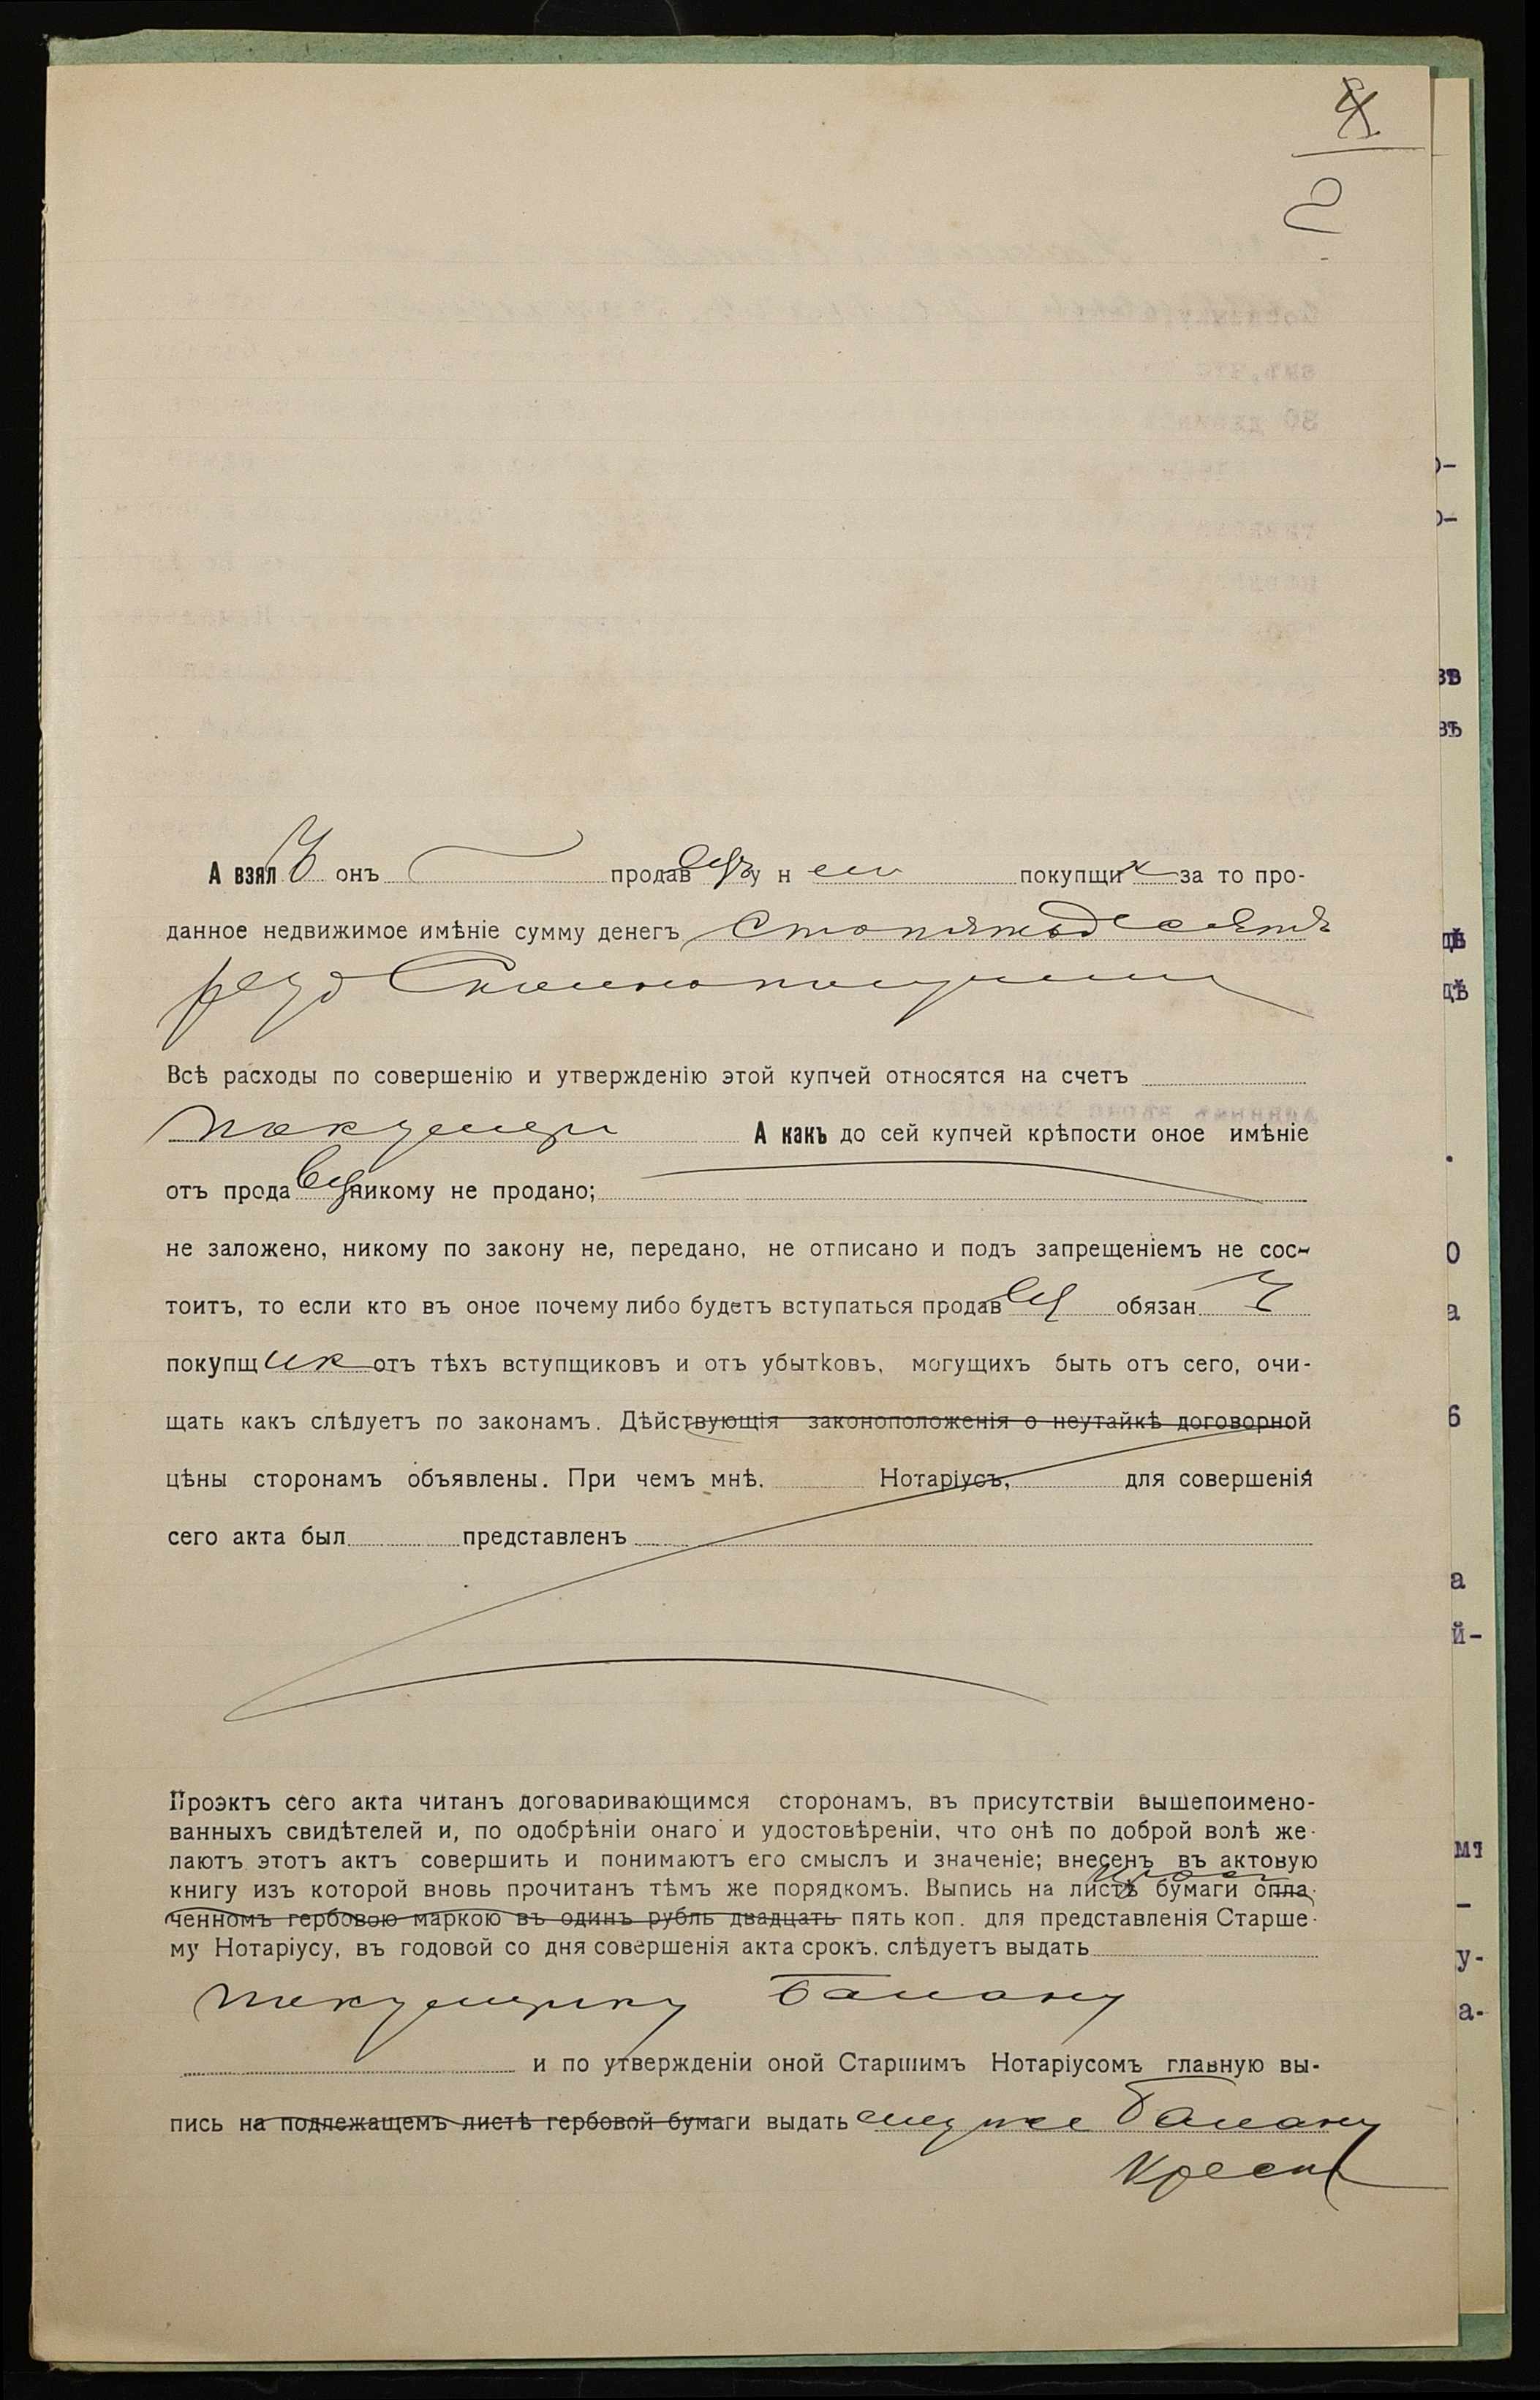 2
А взялъ онъ продавецъ у него покупщик за то про-
данное недвижимое имѣніе сумму денегъ сто пятьдесятъ
руб
Всѣ расходы по совершенію и утвержденію этой купчей относятся на счетъ
А какъ до сей купчей крѣпости оное имѣніе
отъ продавец никому не продано;
не заложено, никому по закону не, передано, не отписано и подъ запрещеніемъ не сос-
тоитъ, то если кто въ оное почему либо будетъ вступаться продавец обязан
покупщик отъ тѣхъ вступщиковъ и отъ убытковъ, могущихъ быть отъ сего, очи-
щать какъ слѣдуетъ по законамъ. Дѣйствующія законоположенія о неутайкѣ договорной
цѣны сторонамъ объявлены. При чемъ мнѣ. Нотаріусъ, для совершенія
сего акта был представленъ
Проэктъ сего акта читанъ договаривающимся сторонамъ, въ присутствіи вышепоимено-
ванныхъ свидѣтелей и, по одобрѣніи онаго и удостовѣреніи, что онѣ по доброй волѣ же-
лаютъ этотъ актъ совершить и понимаютъ его смыслъ и значеніе; внесенъ въ актовую
книгу изъ которой вновь прочитанъ тѣмъ же порядкомъ. Выпись на листѣ бумаги опла-
ченномъ гербовою маркою въ одинъ рубль двадцать пять коп. для представленія Старше-
му Нотаріусу, въ годовой со дня совершенія акта срокъ, слѣдуетъ выдать
покупщику
и по утвержденіи оной Старшимъ Нотаріусомъ главную вы-
пись на подлежащемъ листѣ гербовой бумаги выдать ему же